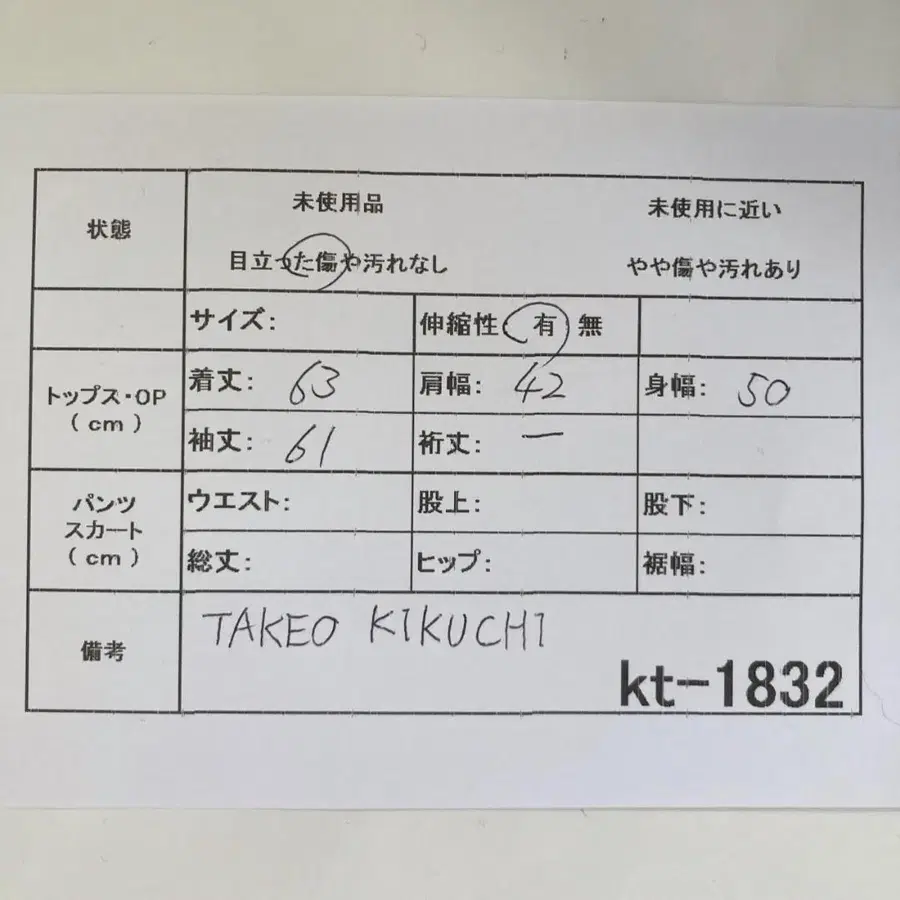 状態
未使用品 未使用に近い
目立った傷や汚れなし やや傷や汚れあり
サイズ: 伸縮性 有 無
トップス・OP
( cm )
着丈: 63 肩幅: 42 身幅: 50
袖丈: 61 裄丈: ー
パンツ
スカート
( cm )
ウエスト: 股上: 股下:
総丈: ヒップ: 裾幅:
備考
TAKEO KIKUCHI
kt-1832